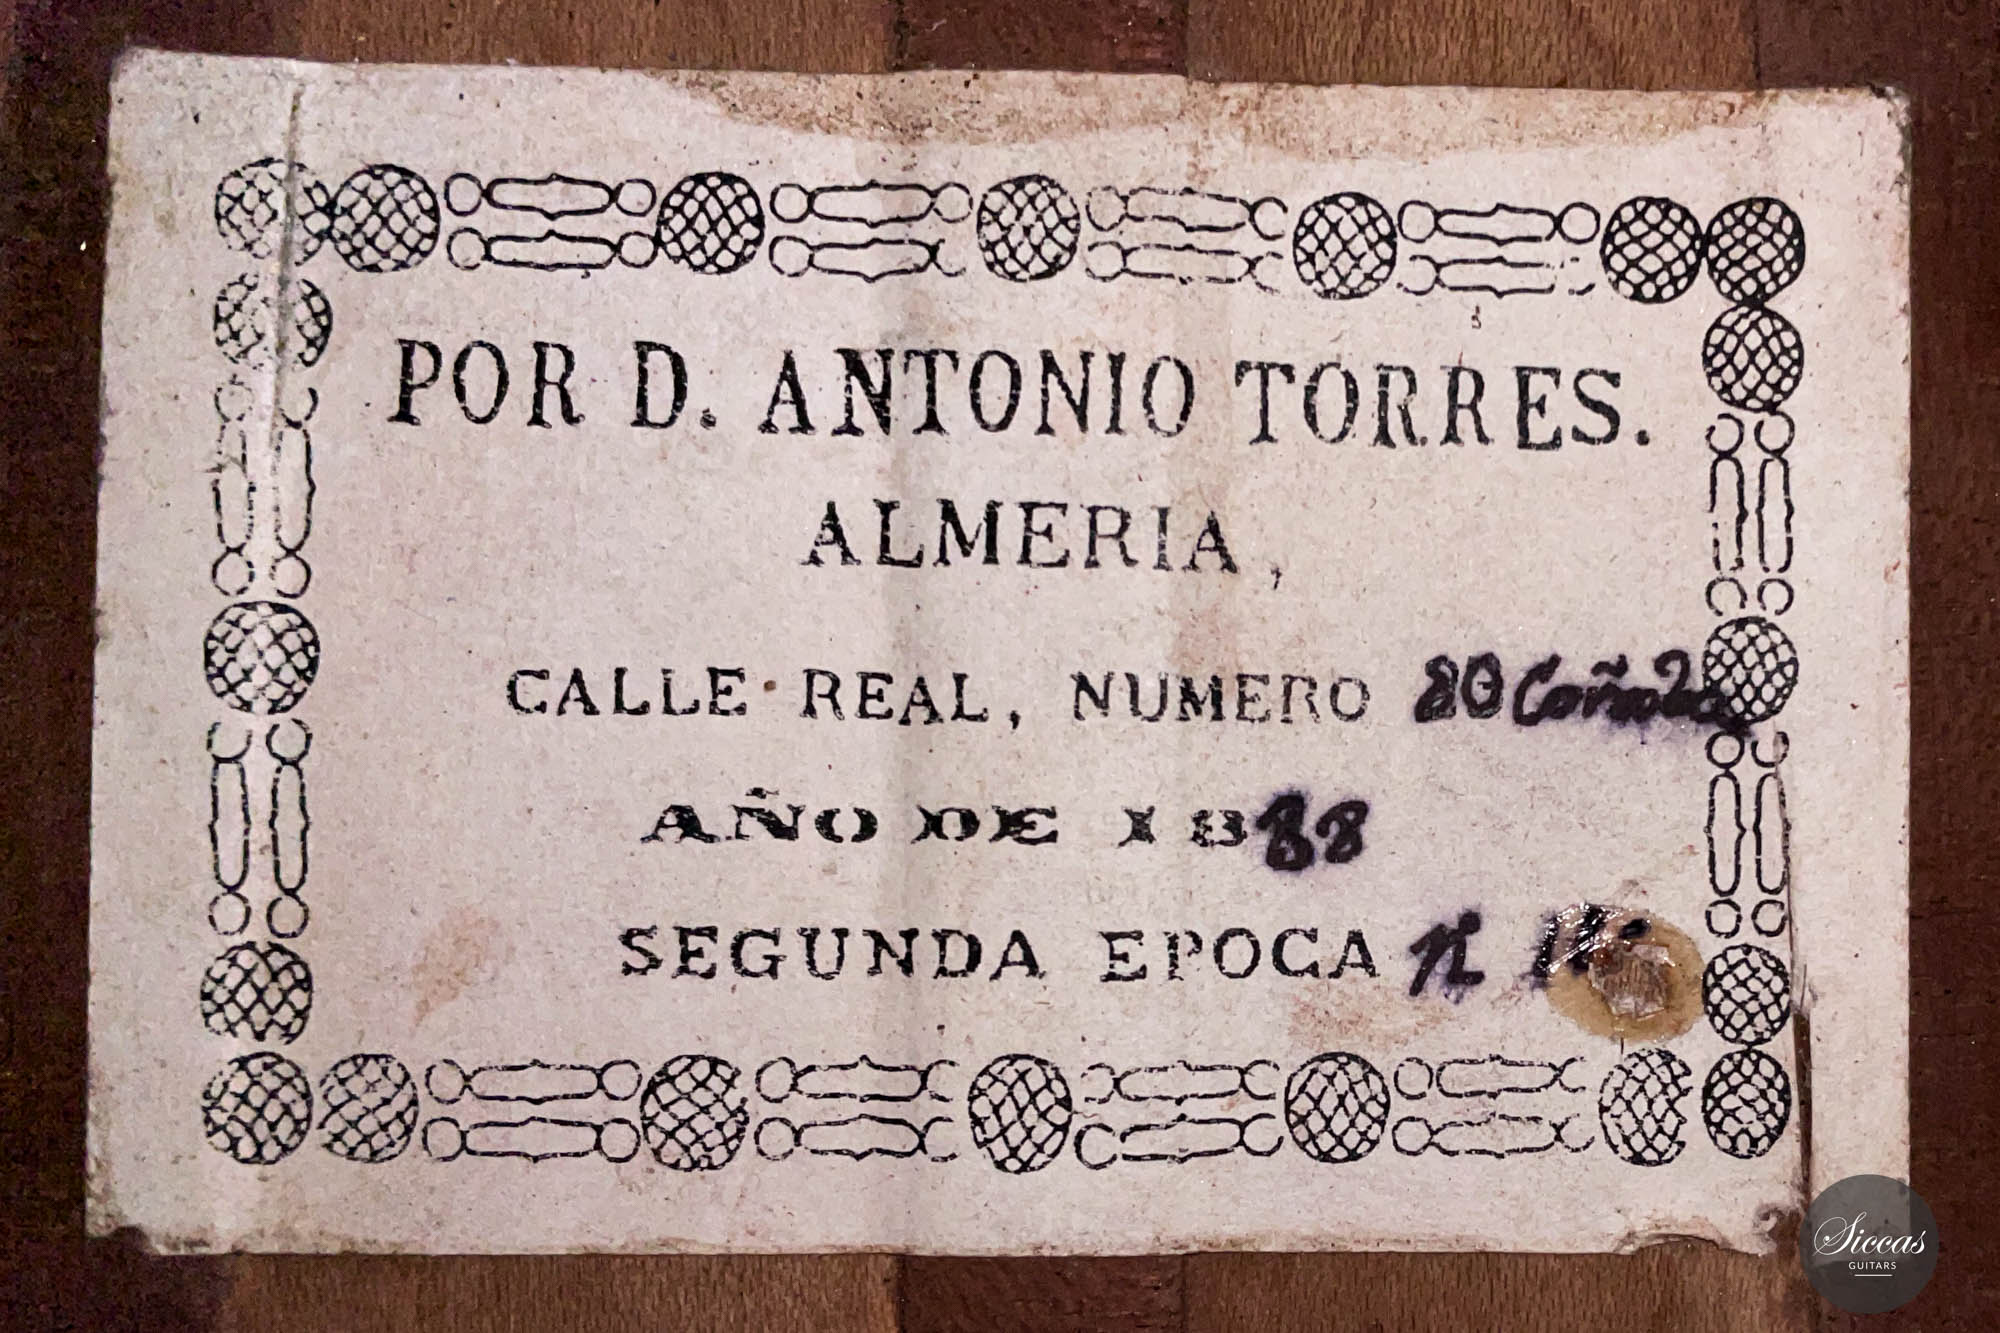 POR D. ANTONIO TORRES.
ALMERIA,
CALLE REAL, NUMERO 80
AÑO DE 1888
SEGUNDA EPOCA N
Siccas
GUITARS